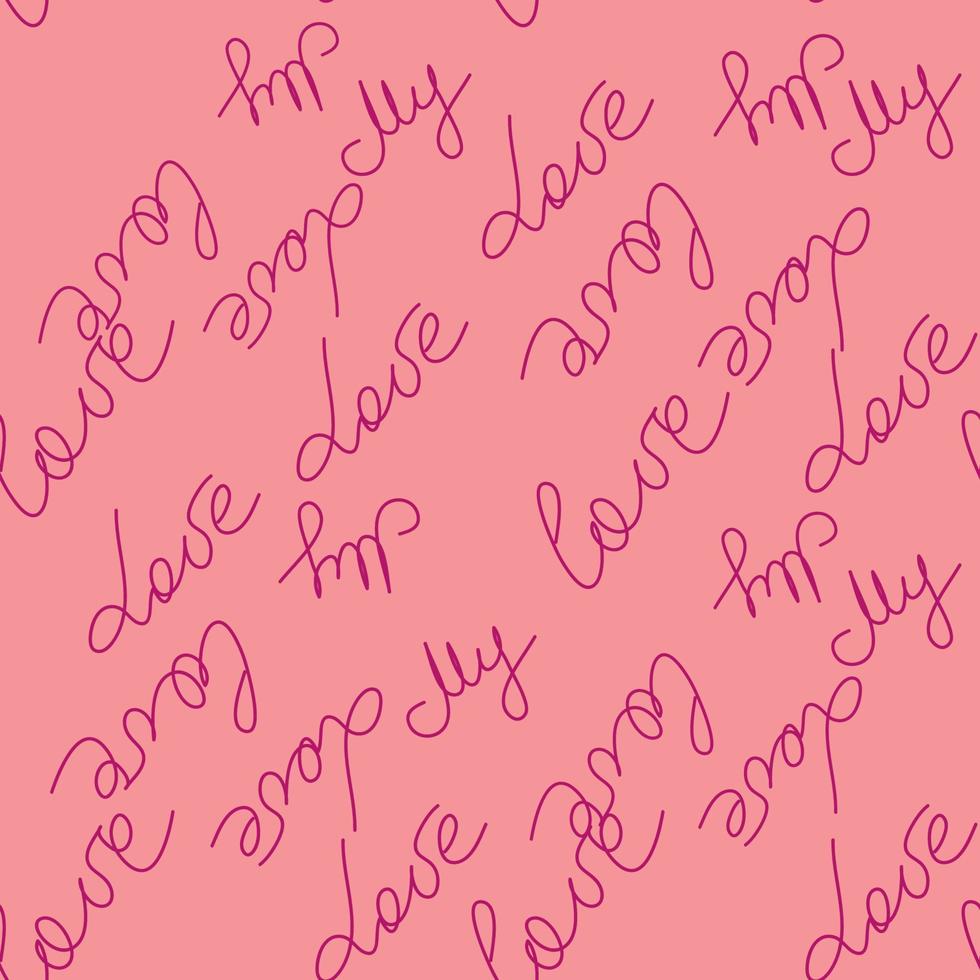 My
My
My
My
Love
love
Love
love
Love
Love
Love
love
love
Love
My
My
My
My
love
Love
love
Love
love
Love
love
Love